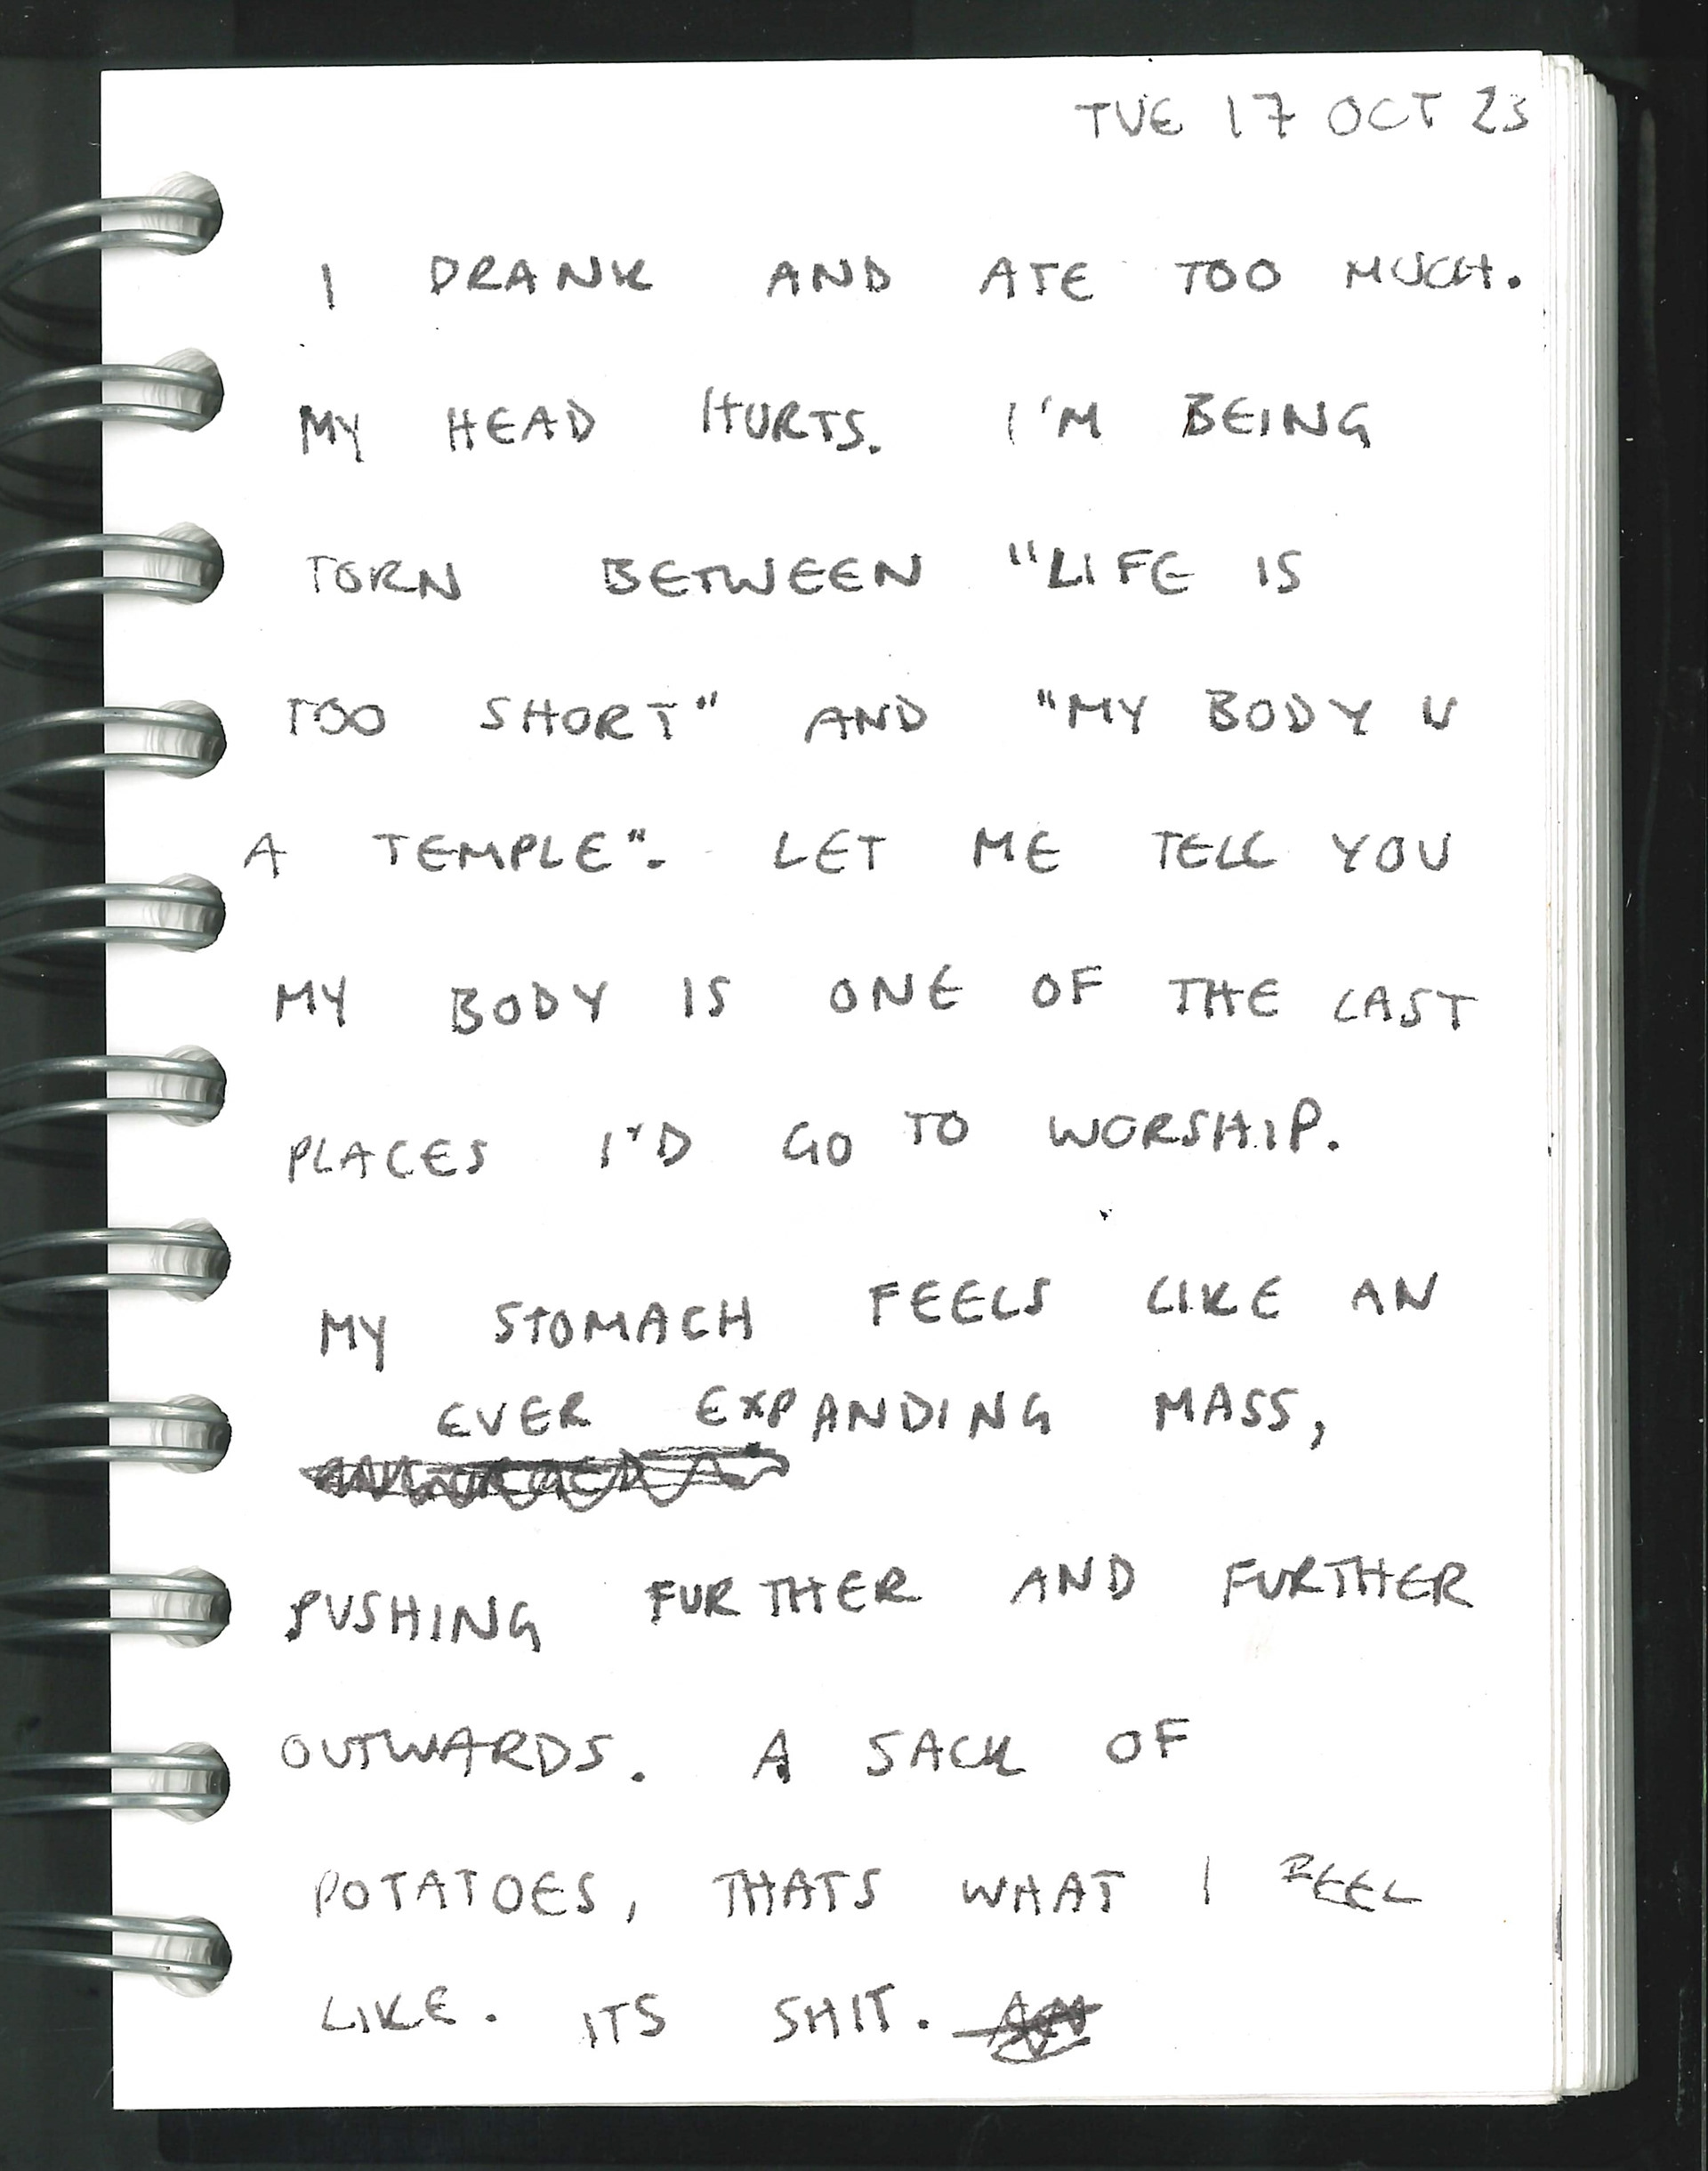 TUE 17 OCT 23
I DRANK AND ATE TOO MUCH.
MY HEAD HURTS. I'M BEING
TORN BETWEEN "LIFE IS
TOO SHORT" AND "MY BODY IS
A TEMPLE". LET ME TELL YOU
MY BODY IS ONE OF THE LAST
PLACES I'D GO TO WORSHIP.
MY STOMACH FEELS LIKE AN
EVER EXPANDING MASS,
PUSHING FURTHER AND FURTHER
OUTWARDS. A SACK OF
POTATOES, THATS WHAT I FEEL
LIKE. ITS SHIT.